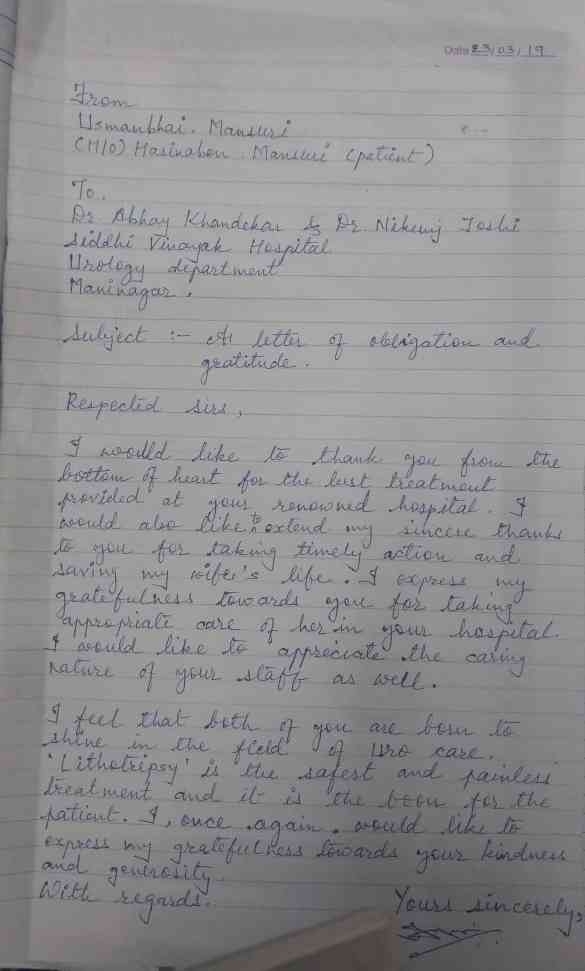 Date 23/03/19
From
Usmanbhai. Mansuri
(H/O) Hasinaben. Mansuri (patient)
To,
Dr Abhay Khandekar & Dr. Nikunj Joshi
Siddhi Vinayak Hospital
Urology department
Maninagar,
Subject :- A letter of obligation and
gratitude.
Respected sirs,
I would like to thank you from the
bottom of heart for the best treatment
provided at your renowned hospital. I
would also like to extend my sincere thanks
to you for taking timely action and
saving my wife's life. I express my
gratefulness towards you for taking
appropriate care of her in your hospital.
I would like to appreciate the caring
nature of your staff as well.
I feel that both of you are born to
shine in the field of Uro care.
'Lithotripsy' is the safest and painless
treatment and it is the boon for the
patient. I, once again, would like to
express my gratefulness towards your kindness
and generosity.
With regards.
Yours sincerely,